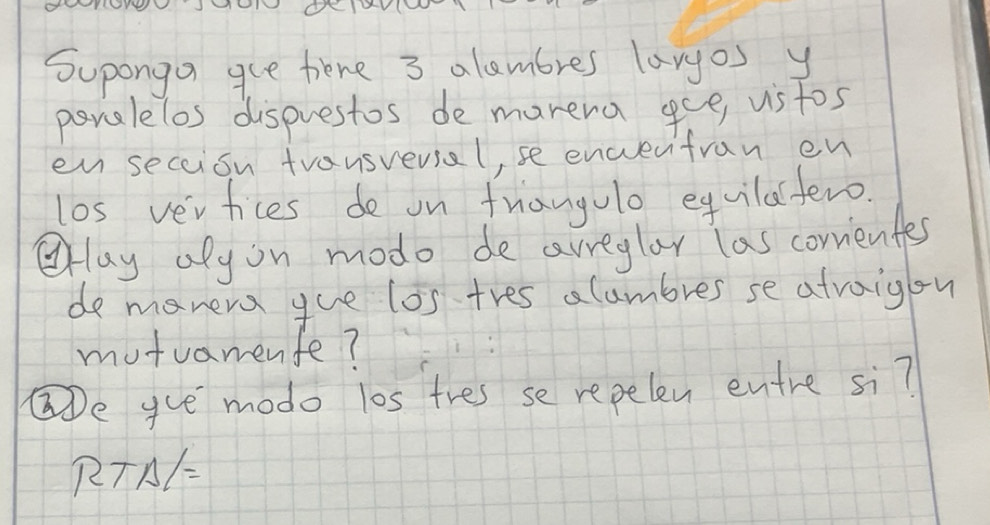 Suponga que tiene 3 alambres largos y
paralelos dispuestos de manera que, vistos
en sección transversal, se encuentran en
los vértices de un triangulo equilatero.
① Hay algún modo de arreglar las corrientes
de manera que los tres alambres se atraigan
mutuamente?
② De qué modo los tres se repelen entre si?
RTA/=